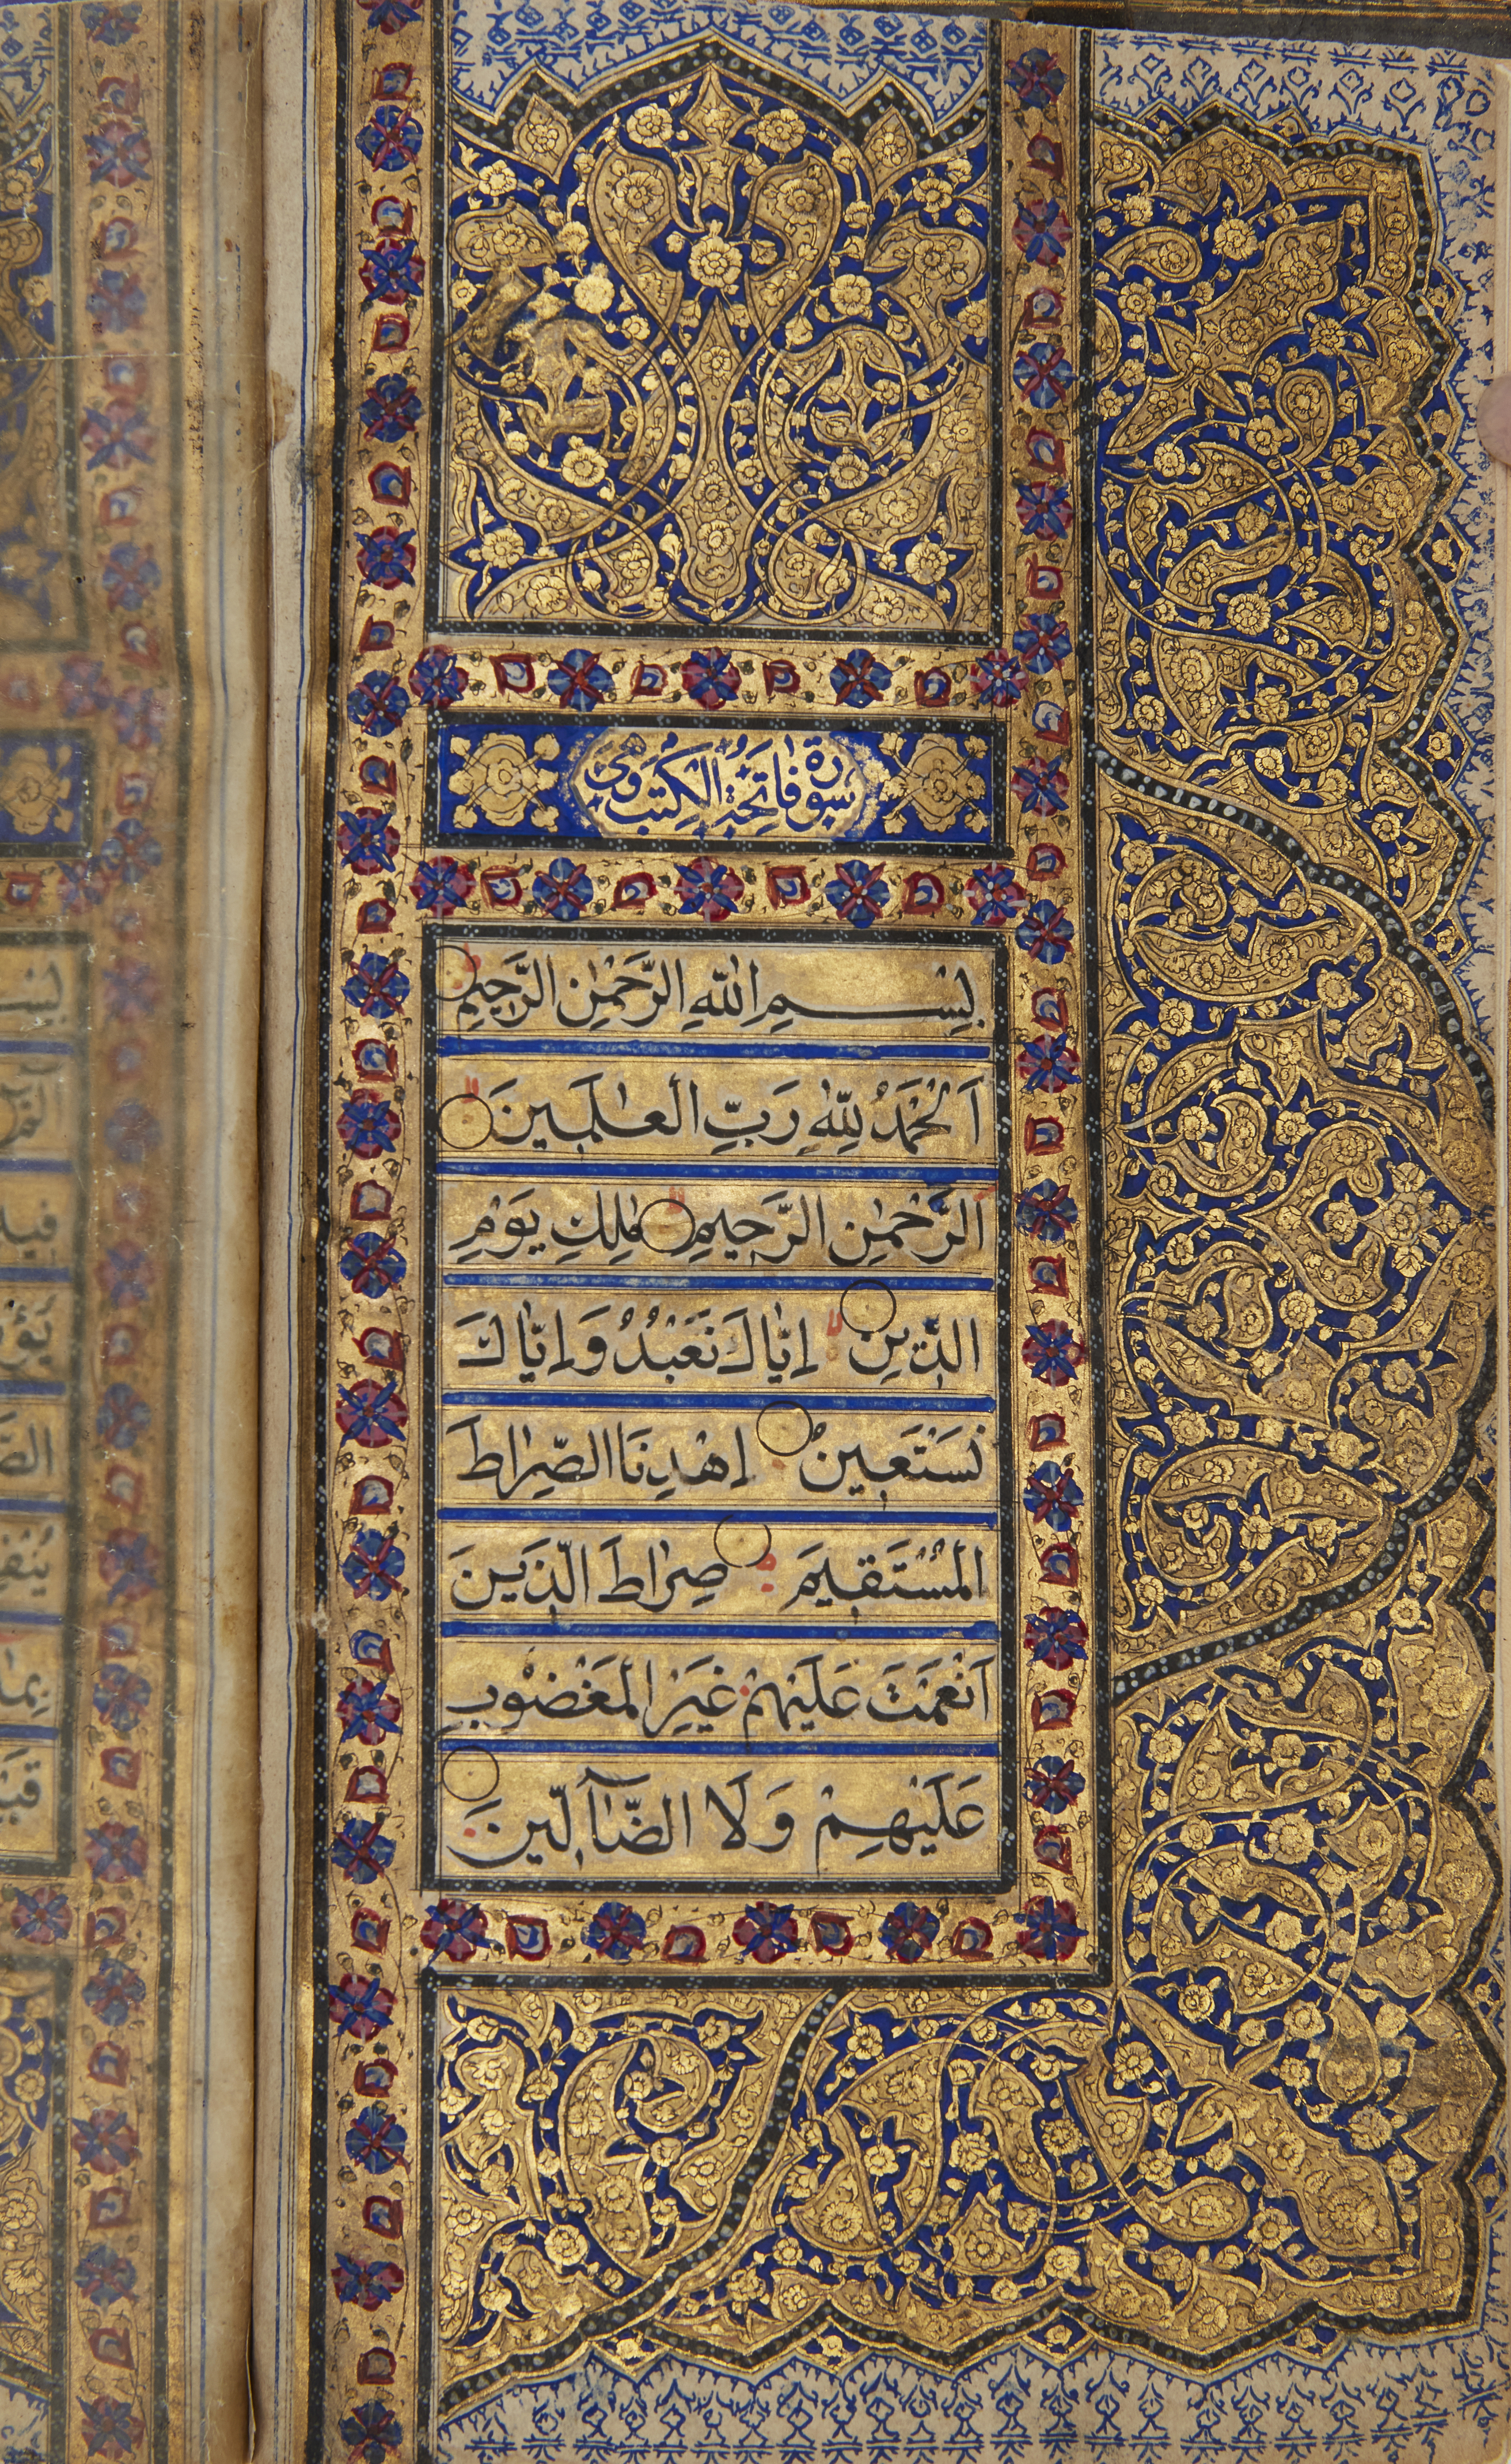 سورة فاتحة الكتب وهى
بِسْمِ اللّٰهِ الرَّحْمٰنِ الرَّحِيمِ
اَلْحَمْدُ لِلّٰهِ رَبِّ الْعٰلَمِينَ
اَلرَّحْمٰنِ الرَّحِيمِ مٰلِكِ يَوْمِ
الدِّينِ اِيَّاكَ نَعْبُدُ وَاِيَّاكَ
نَسْتَعِينُ اِهْدِنَا الصِّرٰاطَ
الْمُسْتَقِيمَ صِرٰاطَ الَّذِينَ
اَنْعَمْتَ عَلَيْهِمْ غَيْرِ الْمَغْضُوبِ
عَلَيْهِمْ وَلَا الضَّٓالِّينَ